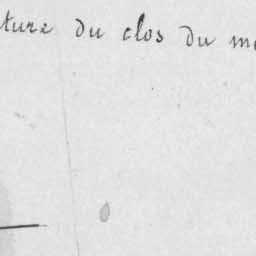 ture du clos du m